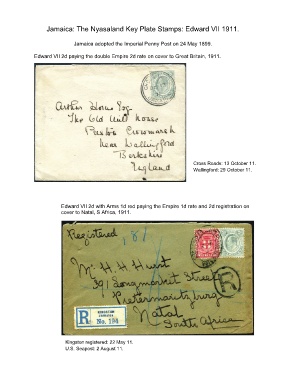 Jamaica: The Nyasaland Key Plate Stamps: Edward VII 1911.
Jamaica adopted the Imperial Penny Post on 24 May 1899.
Edward VII 2d paying the double Empire 2d rate on cover to Great Britain, 1911.
Arthur Horne Esq.
The Old Mill House
Preston Crowmarsh
near Wallingford
Berkshire
England
Cross Roads: 13 October 11.
Wallingford: 29 October 11.
Edward VII 2d with Arms 1d red paying the Empire 1d rate and 2d registration on
cover to Natal, S Africa, 1911.
Registered
Mr. H. H. Hurst
391 Longmarket Street
Pietermaritzburg
Natal
South Africa
R
R
KINGSTON
JAMAICA
No. 194
Kingston registered: 22 May 11.
U.S. Seapost: 2 August 11.